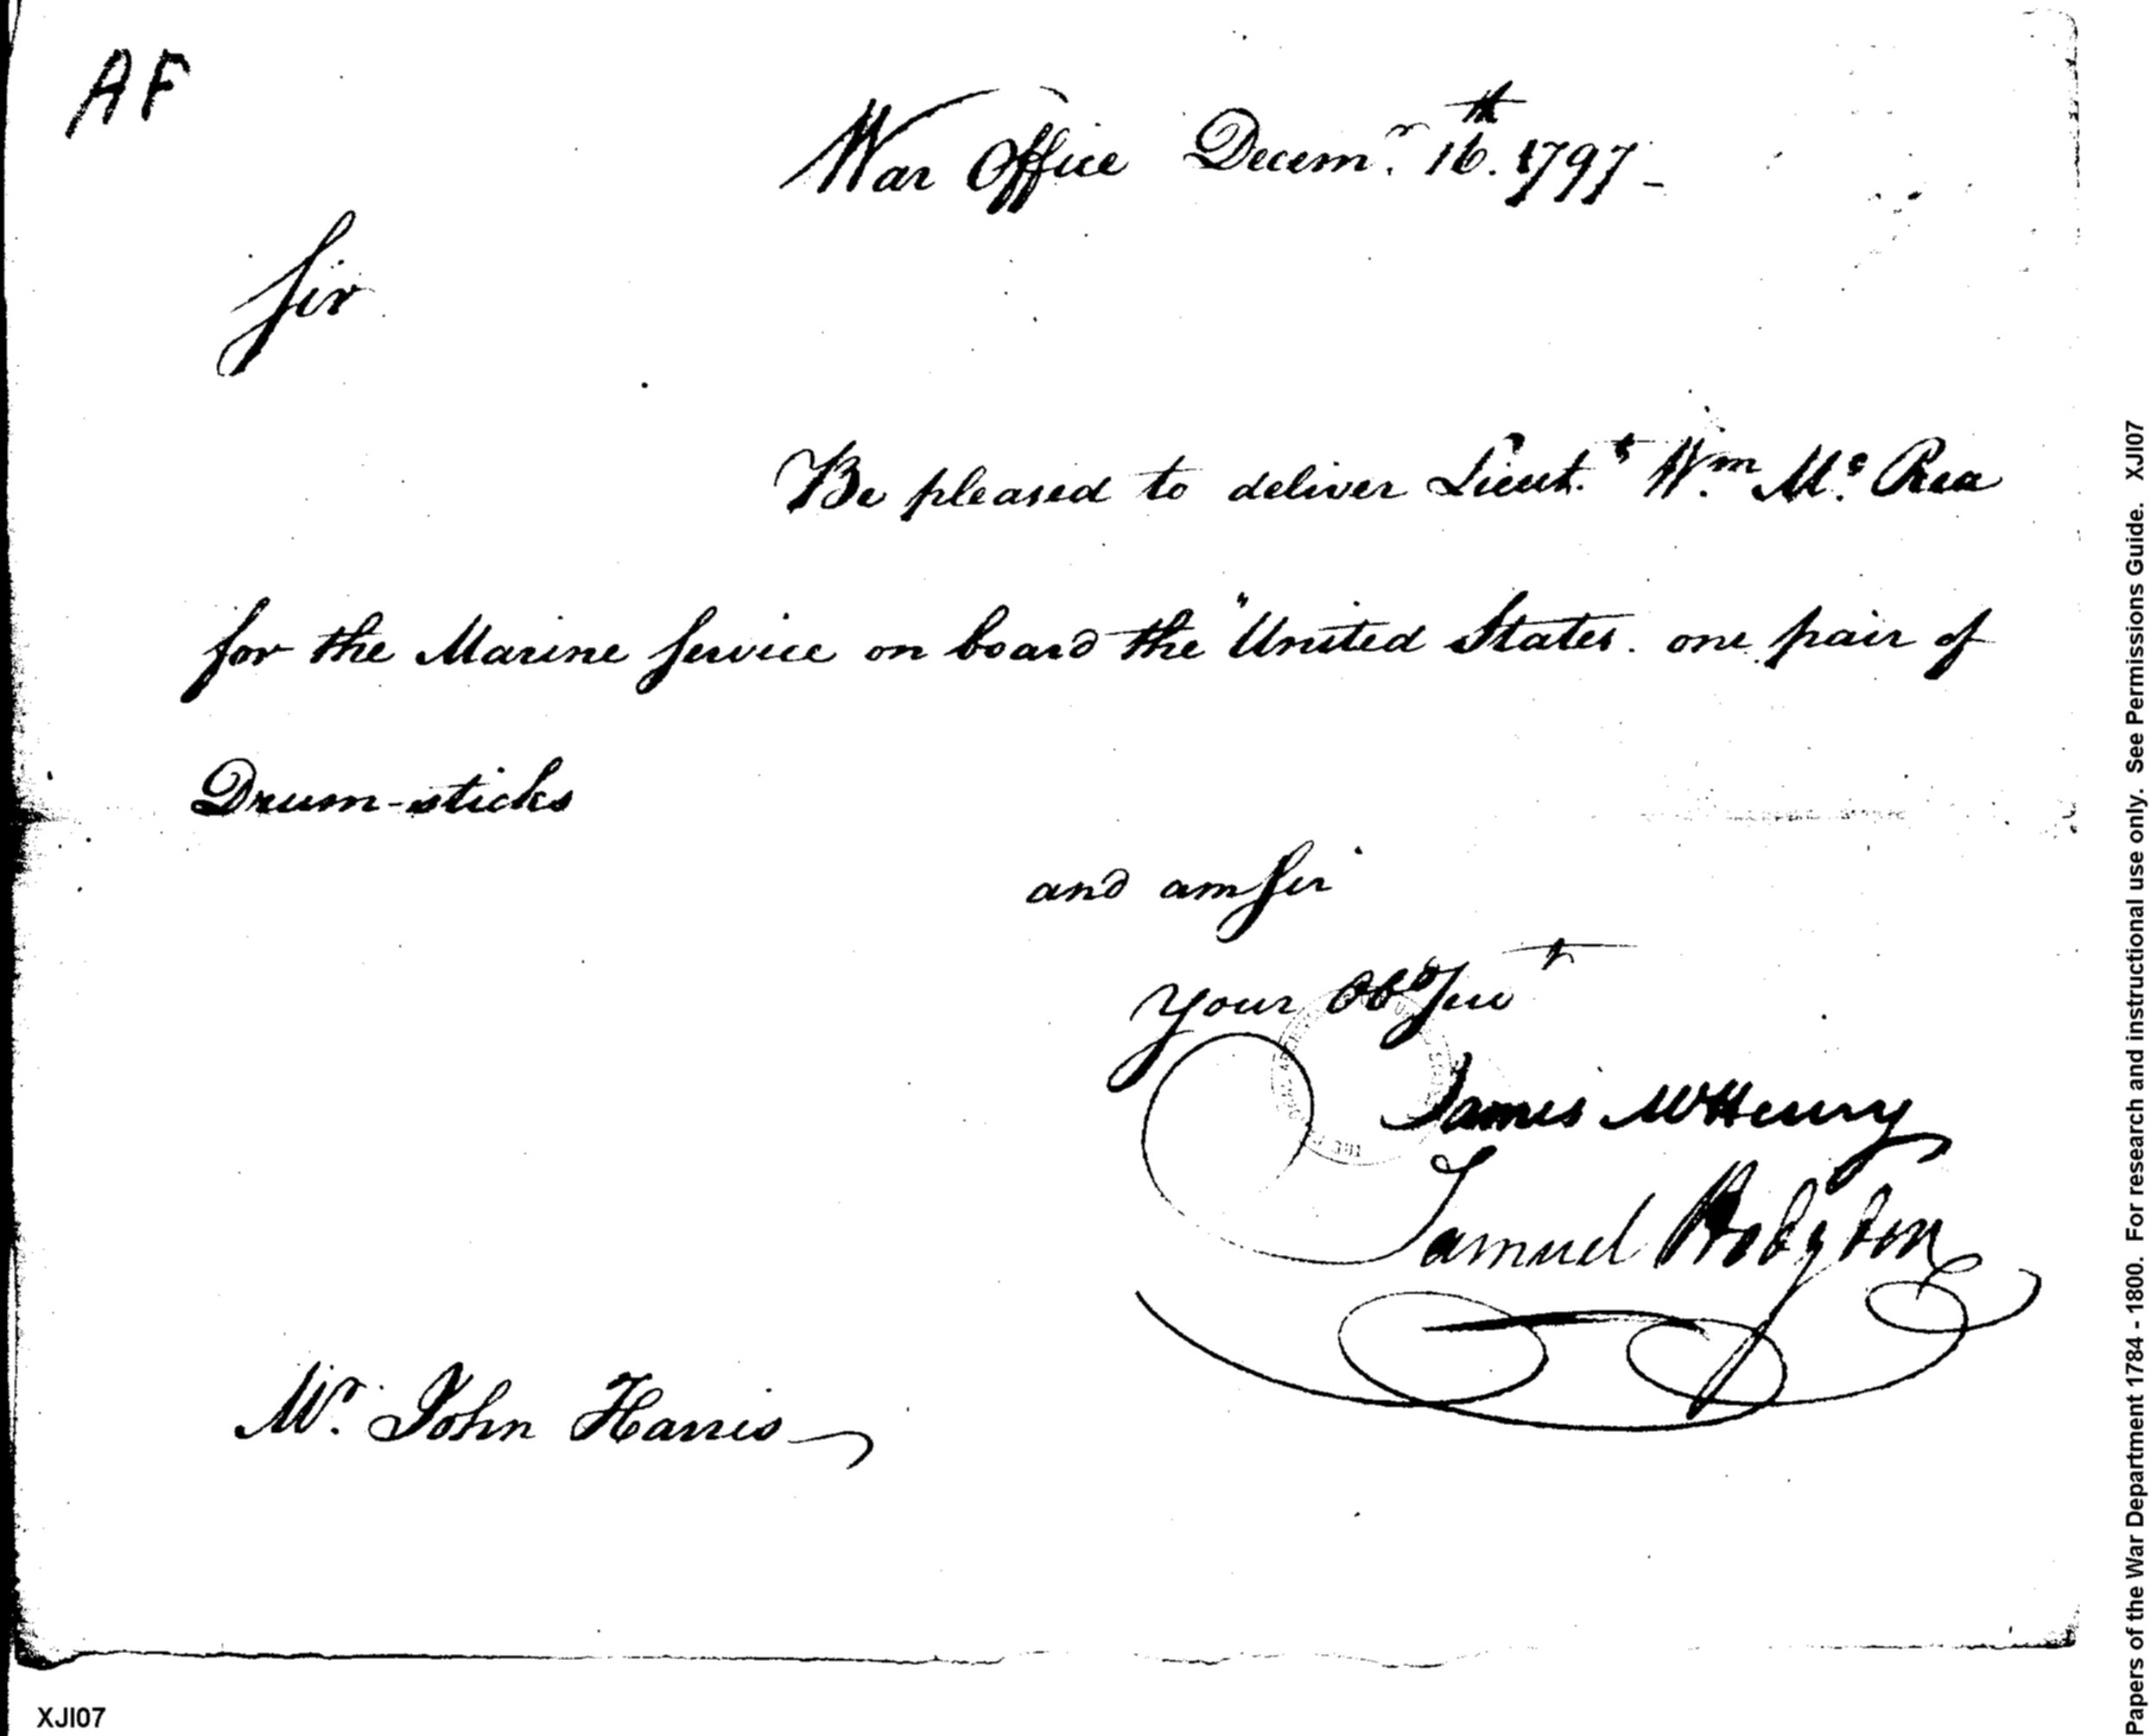 AF
War Office Decemr. 16th. 1797 -
Sir
Be pleased to deliver Lieut.t Wm. Mc. Rea
for the Marine Service on board the "United States. one pair of
Drum-sticks
and am Sir
Your Obd Servt
James McHenry
Samuel Hodgdon
Mr. John Harris
XJI07
Papers of the War Department 1784 - 1800. For research and instructional use only. See Permissions Guide. XJI07